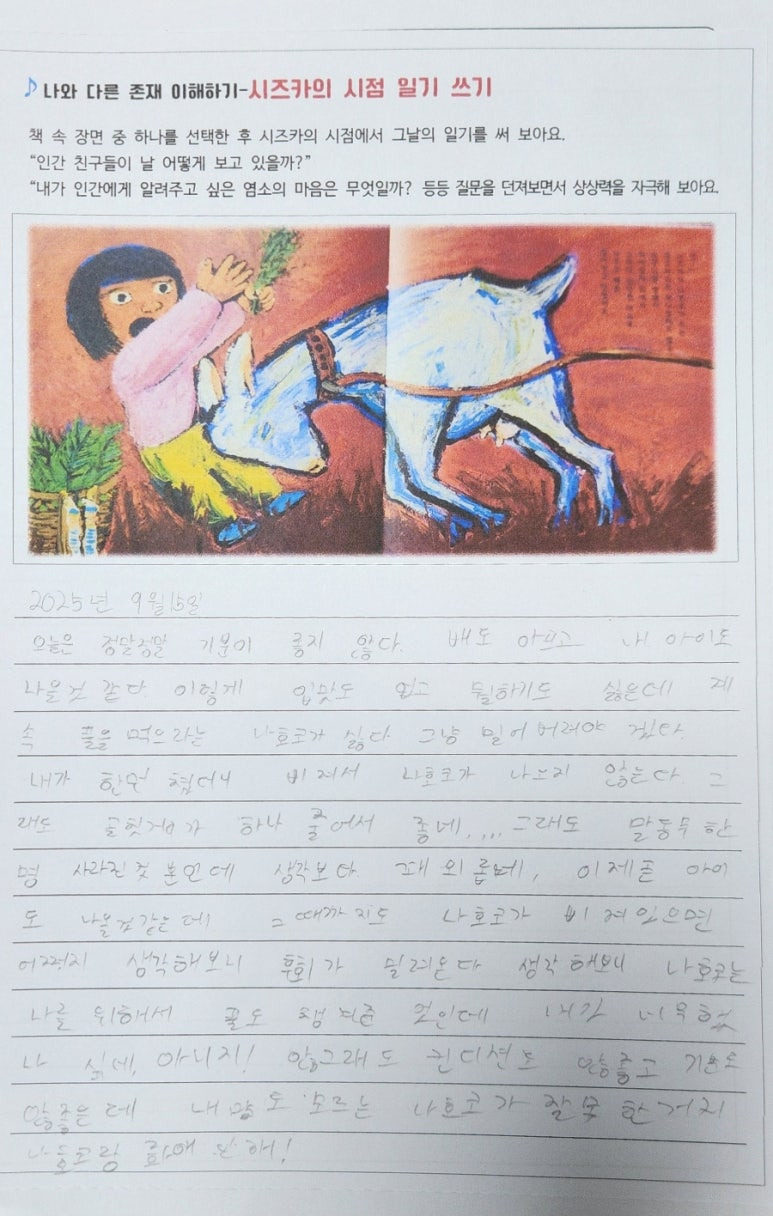 ♪ 나와 다른 존재 이해하기-시즈카의 시점 일기 쓰기
책 속 장면 중 하나를 선택한 후 시즈카의 시점에서 그날의 일기를 써 보아요.
“인간 친구들이 날 어떻게 보고 있을까?”
“내가 인간에게 알려주고 싶은 염소의 마음은 무엇일까? 등등 질문을 던져보면서 상상력을 자극해 보아요.
2025년 9월 15일
오늘은 정말정말 기분이 좋지 않다. 배도 아프고 내 아이도
나올것 같다. 이렇게 입맛도 없고 뭘하기도 싫은데 계
속 풀을 먹으라는 나호코가 싫다 그냥 밀어 버려야 겠다.
내가 한번 쳤더니 삐져서 나호코가 나오지 않는다. 그
래도 골칫거리가 하나 줄어서 좋네,,,, 그래도 말동무 한
명 사라진것 뿐인데 생각보다 꽤 외롭네, 이제곧 아이
도 나올것같은데 그때까지도 나호코가 삐져있으면
어쩌지 생각해보니 후회가 밀려온다 생각해보니 나호코는
나를 위해서 풀도 챙겨준 것인데 내가 너무했
나 싶네, 아니지! 안그래도 컨디션도 안좋고 기분도
안좋은데 내 맘도 모르는 나호코가 잘못 한거지
나호코랑 화해 안해!